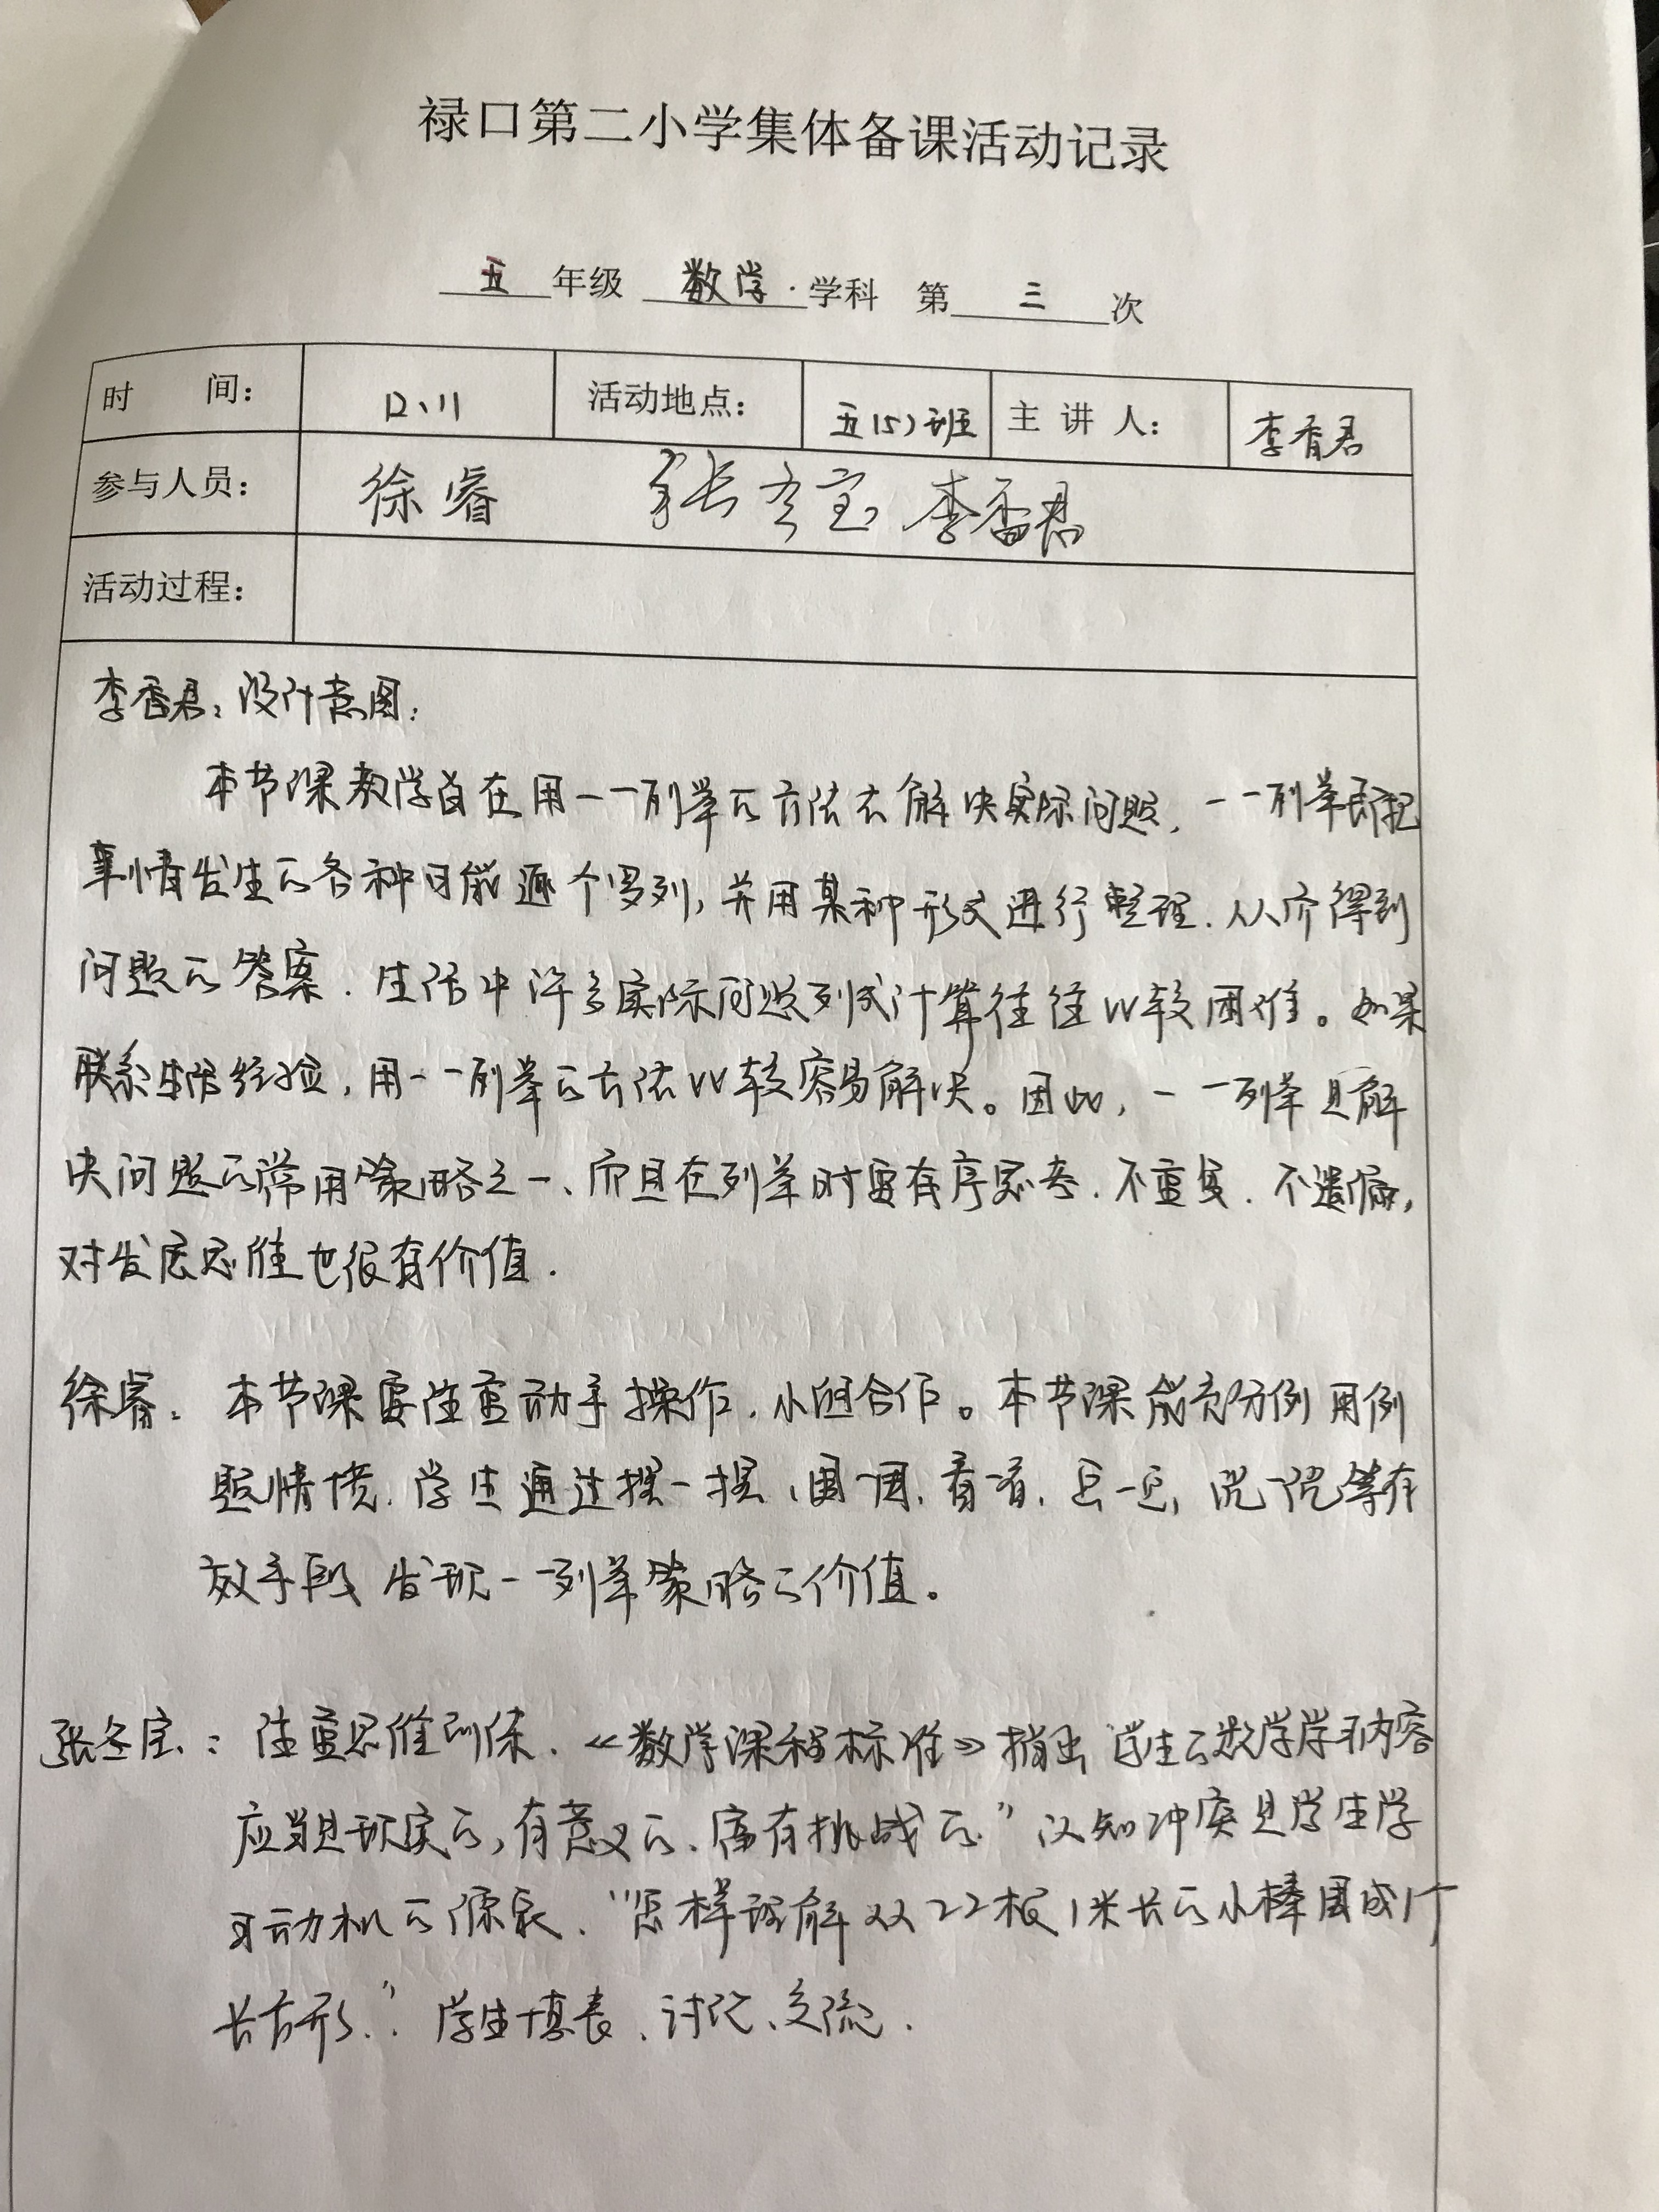 禄口第二小学集体备课活动记录
五 年级 数学 学科 第 三 次
时 间: 12、11 活动地点: 五(5)班 主讲人: 李香君
参与人员: 徐睿 张冬宝 李香君
活动过程:
李香君:设计意图:
本节课教学旨在用一一列举的方法去解决实际问题,一一列举即把
事情发生的各种可能逐个罗列,并用某种形式进行整理.从而得到
问题的答案.生活中许多实际问题列式计算往往比较困难。如果
联系生活经验,用一一列举的方法比较容易解决。因此,一一列举是解
决问题的常用策略之一、而且在列举时要有序思考.不重复.不遗漏,
对发展思维也很有价值.
徐睿:本节课要注重动手操作.小组合作。本节课能充分利用例
题情境.学生通过摆一摆、围一围、看一看、 说一说等有
效手段发现一一列举策略的价值。
张冬宝:注重思维训练.《数学课程标准》指出"学生的数学学习内容
应当是现实的,有意义的、富有挑战的."认知冲突是学生学
习动机的源泉."怎样理解用22根1米长的小棒围成1个
长方形."学生填表、讨论、交流.